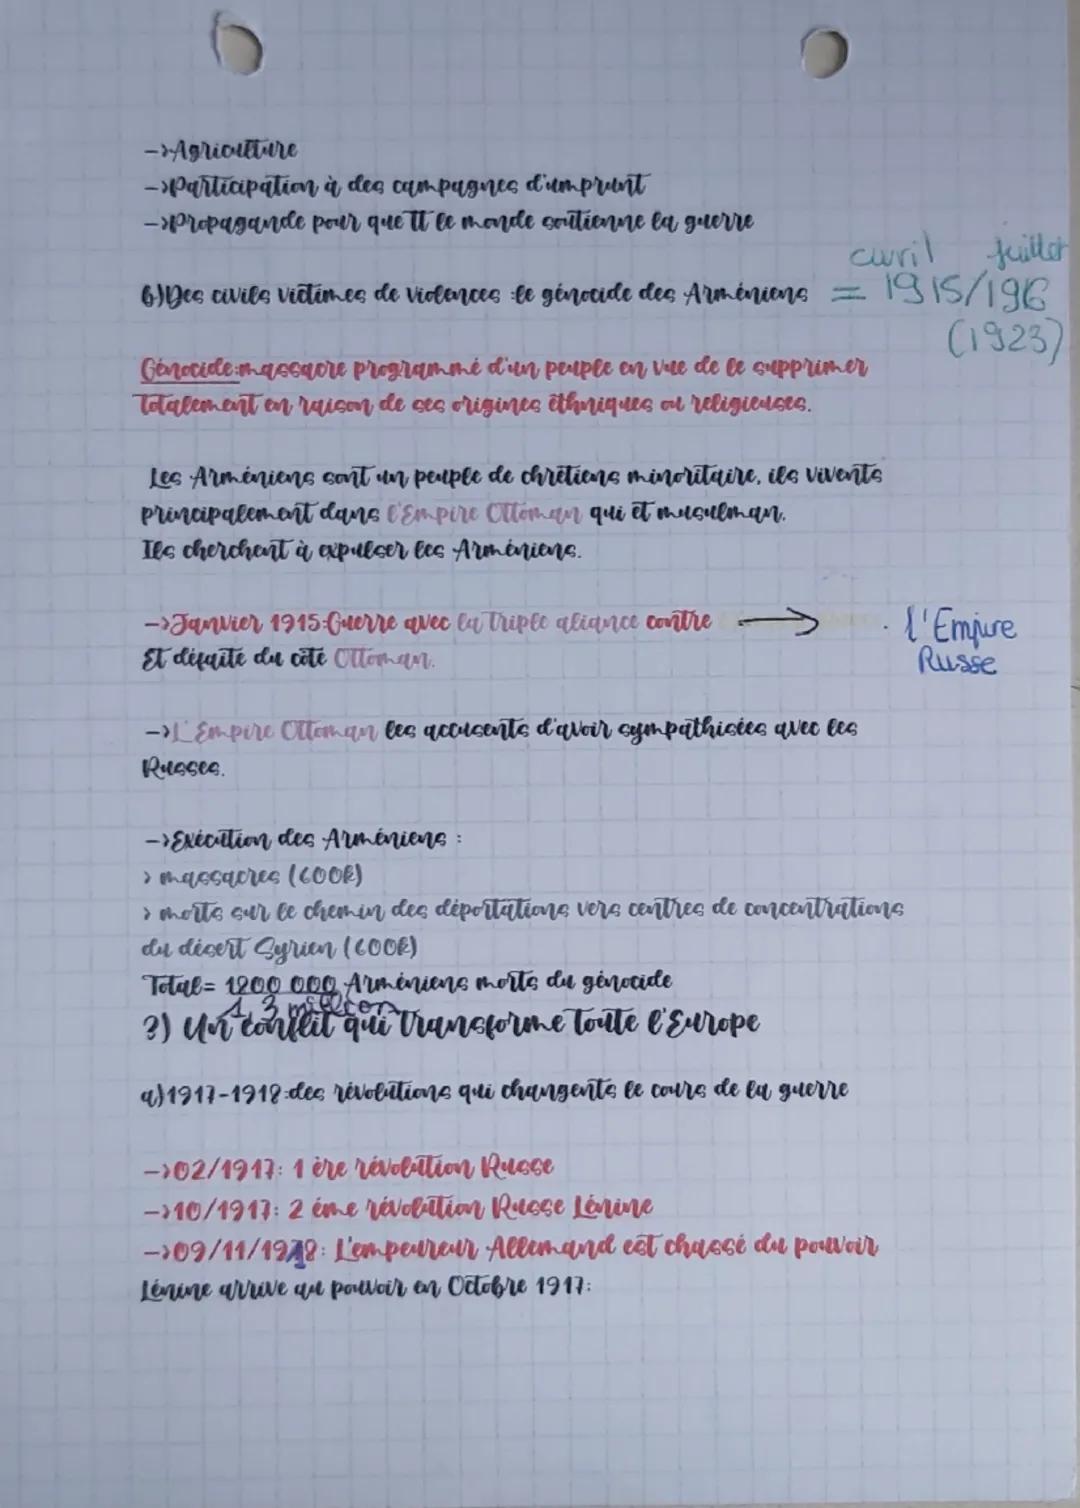 ->Agriculture
->Participation à des campagnes d'umprunt
->Propagande pour que tt le monde soutienne la guerre
avril juillet
6)Des civils victimes de violences :le génocide des Arméniens = 1915/196
(1923)
Génocide:massacre programmé d'un peuple en vue de le supprimer
totalement en raison de ses origines éthniques ou religieuses.
Les Arméniens sont un peuple de chrétiens minoritaire, ils vivents
principalement dans l'Empire Ottoman qui ét musulman.
Ils cherchent à expulser les Arméniens.
->Janvier 1915:Guerre avec la triple aliance contre → l'Empire
Russe
Et défaite du côté Ottoman.
->L'Empire Ottoman les accusents d'avoir sympathisées avec les
Russes.
->Exécution des Arméniens :
> massacres (600k)
> morts sur le chemin des déportations vers centres de concentrations
du désert Syrien (600k)
Total= 1200 000 Arméniens morts du génocide
1,3 million
3) Un conflit qui transforme toute l'Europe
a)1917-1918:des révolutions qui changents le cours de la guerre
->02/1917: 1 ère révolution Russe
->10/1917: 2 éme révolution Russe Lénine
->09/11/1918: L'empeureur Allemand est chassé du pouvoir
Lénine arrive au pouvoir en Octobre 1917: